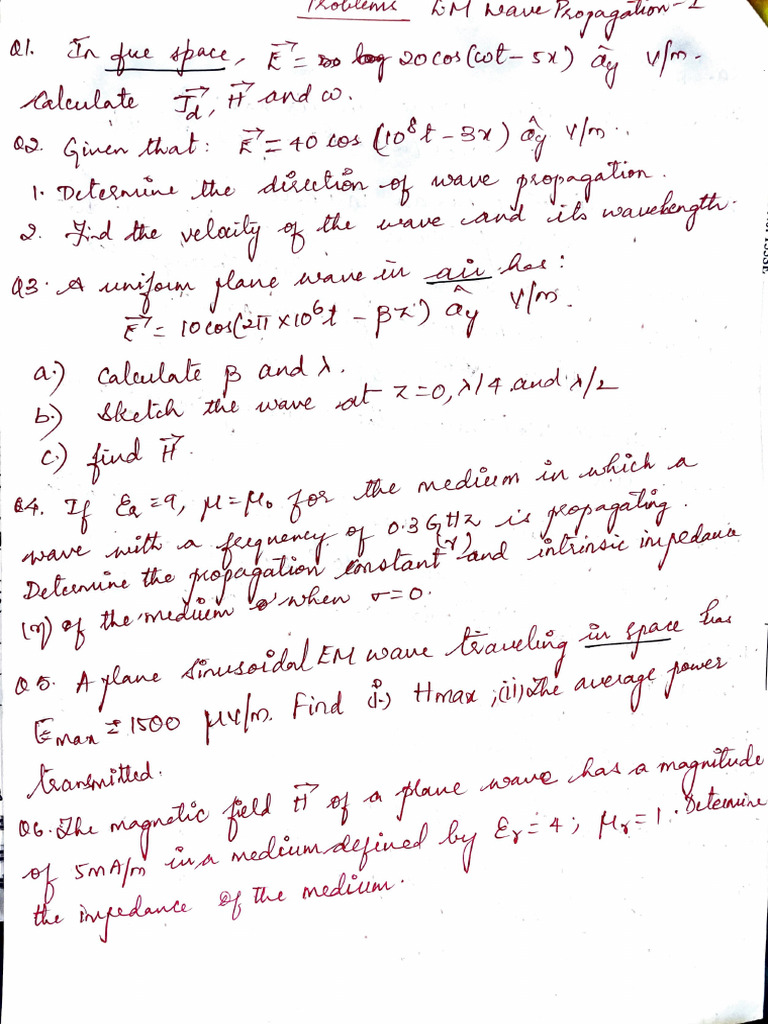 Problems EM Wave Propagation-1
Q1. In free space, E⃗ = 20 cos(ωt - 5x) ây V/m.
Calculate J⃗d, H⃗ and ω.
Q2. Given that: E⃗ = 40 cos (10⁸t - 3x) ây V/m.
1. Determine the direction of wave propagation.
2. Find the velocity of the wave and its wavelength.
Q3. A uniform plane wave in air has:
E⃗ = 10 cos(2π×10⁶t - βz) ây V/m.
a.) Calculate β and λ.
b.) Sketch the wave at z=0, λ/4 and λ/2
c.) find H⃗.
Q4. If εr=9, μ=μ₀ for the medium in which a
wave with a frequency of 0.3 GHz is propagating.
Determine the propagation constant (γ) and intrinsic impedance
(η) of the medium when σ=0.
Q5. A plane sinusoidal EM wave traveling in space has
Emax = 1500 μV/m. Find i.) Hmax ; (ii) The average power
transmitted.
Q6. The magnetic field H⃗ of a plane wave has a magnitude
of 5mA/m in a medium defined by εr=4; μr=1. Determine
the impedance of the medium.